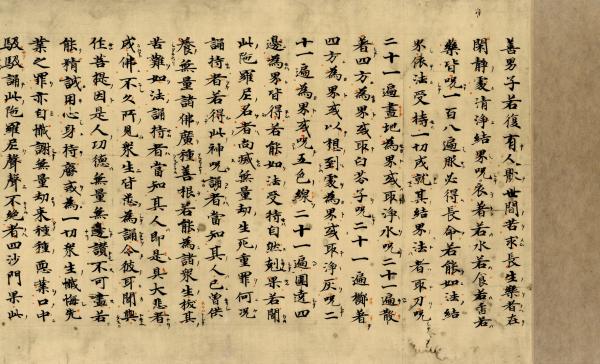 善男子若復有人猒世間苦求長生樂者在
閑靜處清淨結界呪衣著若水若食若香若
藥皆呪一百八遍服必得長命若能如法結
界依法受持一切成就其結界法者取刀呪
二十一遍畫地為界或取淨水呪二十一遍散
著四方為界或取白芥子呪二十一遍擲著
四方為界或以想到處為界或取淨灰呪二
十一遍為界或呪五色線二十一遍圍遶四
邊為界皆得若能如法受持自然剋果若聞
此陁羅尼名者尚滅無量劫生死重罪何況
誦持者若得此神呪誦者當知其人已曾供
養無量諸佛廣種善根若能為諸衆生拔其
苦難如法誦持者當知其人即是具大悲者
成佛不久所見衆生皆悉為誦令彼耳聞與
作菩提因是人功德無量無邊讚不可盡若
能精誠用心身持齋戒為一切衆生懺悔先
業之罪亦自懺謝無量劫來種種惡業口中
馺馺誦此陁羅尼聲聲不絶者四沙門果此